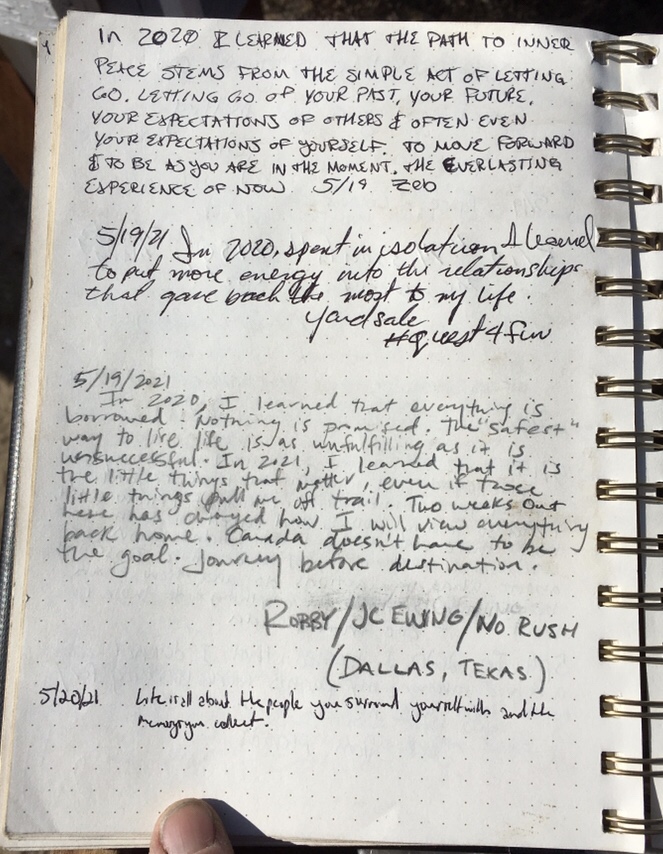 In 2020 I LEARNED THAT THE PATH TO INNER
PEACE STEMS FROM THE SIMPLE ACT OF LETTING
GO. LETTING GO OF YOUR PAST, YOUR FUTURE,
YOUR EXPECTATIONS OF OTHERS & OFTEN EVEN
YOUR EXPECTATIONS OF YOURSELF. TO MOVE FORWARD
& TO BE AS YOU ARE IN THE MOMENT. THE EVERLASTING
EXPERIENCE OF NOW. 5/19 Zeb
5/19/21 In 2020, spent in isolation I learned
to put more energy into the relationships
that gave back the most to my life.
Yardsale
#quest4fun
5/19/2021
In 2020, I learned that everything is
borrowed. Nothing is promised. The "safest"
way to live life is as unfulfilling as it is
unsuccessful. In 2021, I learned that it is
the little things that matter, even if those
little things pull me off trail. Two weeks out
here has changed how I will view everything
back home. Canada doesn't have to be
the goal. Journey before destination.
ROBBY/JC EWING/NO RUSH
(DALLAS, TEXAS)
5/20/21 Life is all about the people you surround yourself with and the
you collect.